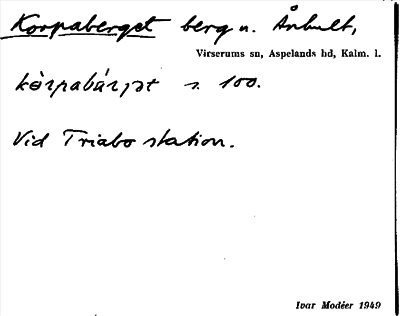 Korpaberget berg u. Ånhult,
Virserums sn, Aspelands hd, Kalm. l.
s. 100.
Vid Triabo station.
Ivar Modéer 1949